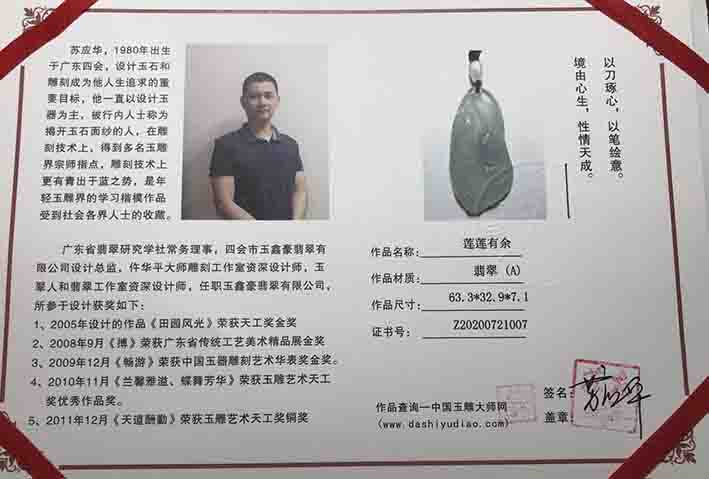 苏应华，1980年出生
于广东四会，设计玉石和
雕刻成为他人生追求的重
要目标，他一直以设计玉
器为主，被行内人士称为
揭开玉石面纱的人，在雕
刻技术上，得到多名玉雕
界宗师指点，雕刻技术上
更有青出于蓝之势，是年
轻玉雕界的学习楷模作品
受到社会各界人士的收藏。
广东省翡翠研究学社常务理事，四会市玉鑫豪翡翠有
限公司设计总监，仵华平大师雕刻工作室资深设计师，玉
翠人和翡翠工作室资深设计师，任职玉鑫豪翡翠有限公司，
所参于设计获奖如下：
1、2005年设计的作品《田园风光》荣获天工奖金奖
2、2008年9月《搏》荣获广东省传统工艺美术精品展金奖
3、2009年12月《畅游》荣获中国玉器雕刻艺术华表奖金奖。
4、2010年11月《兰馨雅溢、蝶舞芳华》荣获玉雕艺术天工
奖优秀作品奖。
5、2011年12月《天道酬勤》荣获玉雕艺术天工奖铜奖
以刀琢心，以笔绘意。
境由心生，性情天成。
作品名称：莲莲有余
作品材质：翡翠（A）
作品尺寸：63.3*32.9*7.1
证书号：Z20200721007
作品查询一中国玉雕大师网
(www.dashiyudiao.com)
签名：
盖章：